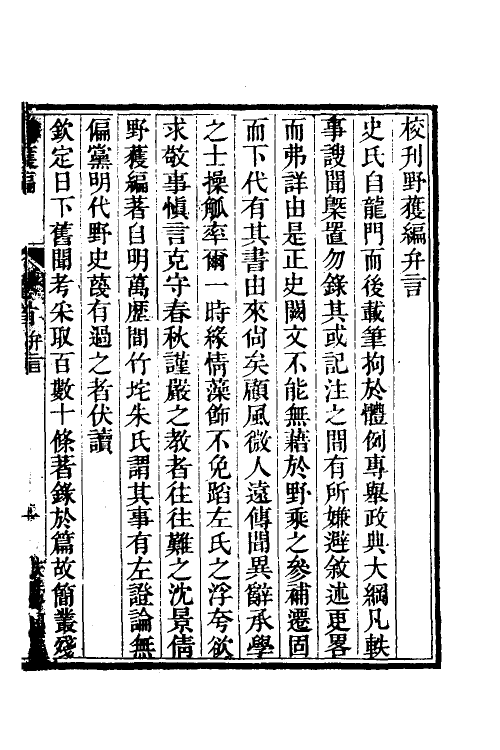 校刊野獲編弁言
史氏自龍門而後載筆拘於體例專舉政典大綱凡軼
事謏聞槩置勿錄其或記注之間有所嫌避敘述更畧
而弗詳由是正史闕文不能無藉於野乘之參補遷固
而下代有其書由來尙矣顧風微人遠傳聞異辭承學
之士操觚率爾一時緣情藻飾不免蹈左氏之浮夸欲
求敬事愼言克守春秋謹嚴之教者往往難之沈景倩
野獲編著自明萬歷間竹垞朱氏謂其事有左證論無
偏黨明代野史蔑有過之者伏讀
欽定日下舊聞考采取百數十條著錄於篇故簡叢殘
獲編
弁言